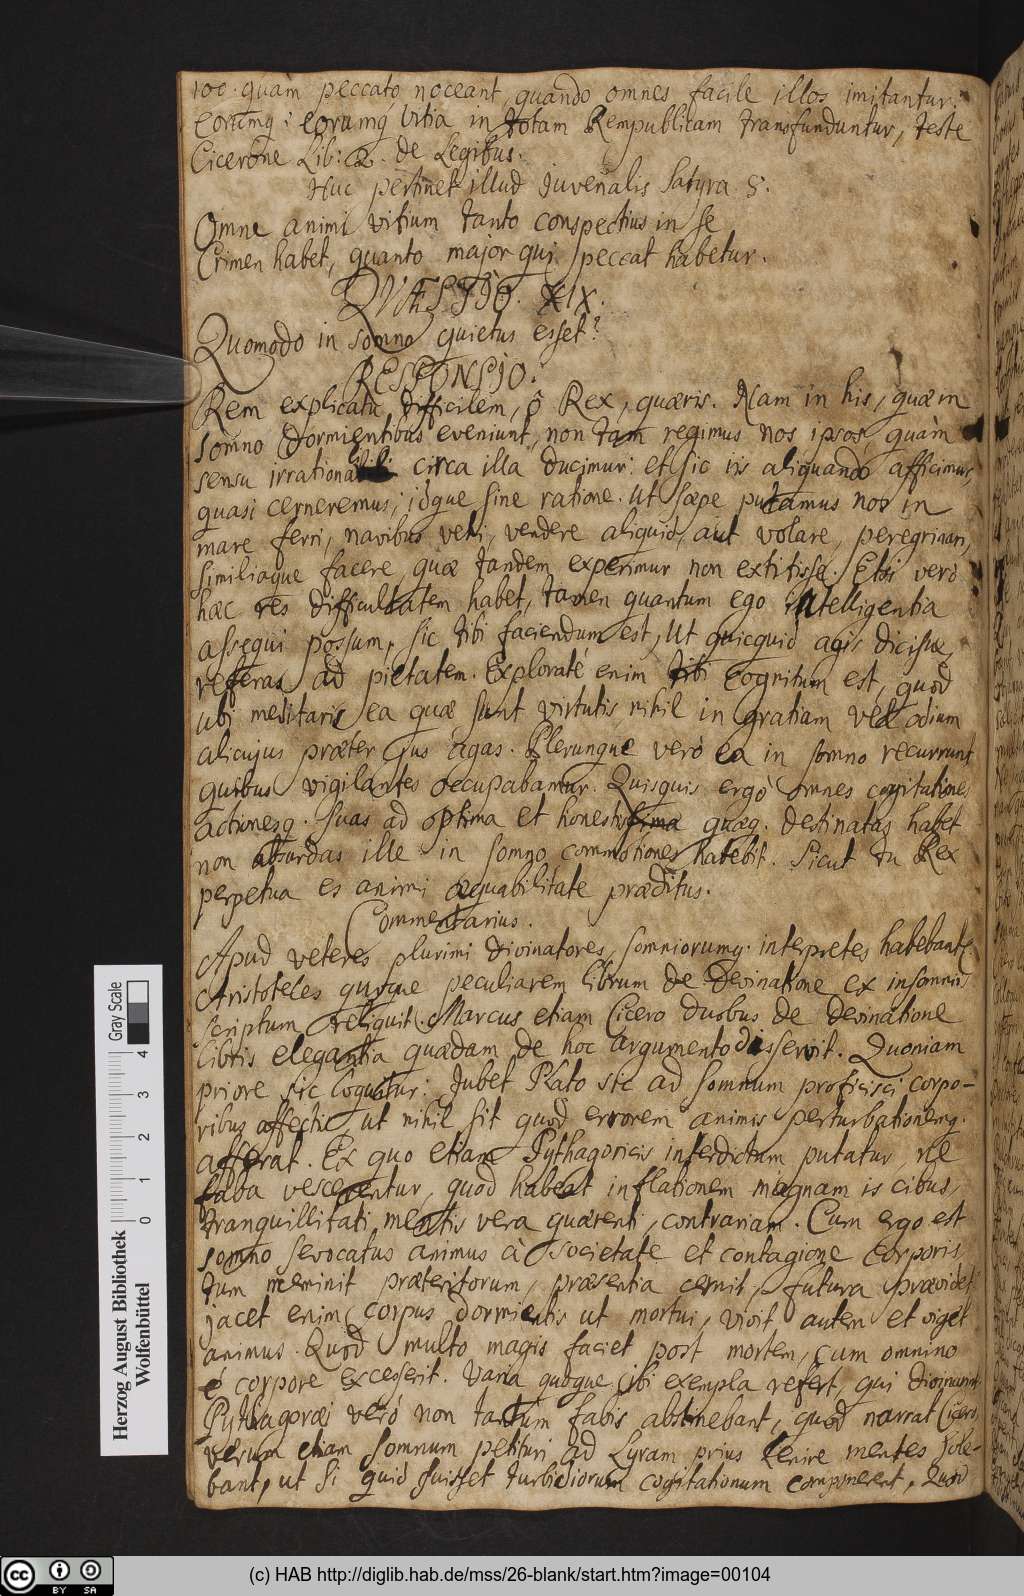 100. quàm peccato noceant, quando omnes facile illos imitantur.
eorumq; vitia in totam Rempublicam transfunduntur, teste
Cicerone Lib: 2. de Legibus.
Huc pertinet illud Juvenalis Satyra 8.
Omne animi vitium tanto conspectius in se
Crimen habet, quanto major qui peccat habetur.
QVÆSTIO. XIX.
Quomodo in somno quietus esset?
RESPONSIO.
Rem explicatu difficilem, ô Rex, quæris. Nam in his, quæ in
somno dormientibus eveniunt, non tam regimus nos ipsos, quàm
sensu irrationabili circa illa ducimur: et sic iis aliquando afficimur,
quasi cerneremus, idque sine ratione. Ut sæpe putamus nos in
mare ferri, navibus vehi, vendere aliquid, aut volare, peregrinari,
similiaque facere, quæ tandem experimur non extitisse. Etsi verò
hæc res difficultatem habet, tamen quantum ego intelligentia
assequi possum, sic tibi faciendum est, Ut quicquid agis dicisue,
referas ad pietatem. Exploratè enim tibi cognitum est, quod
ubi meditaris ea quæ sunt virtutis, nihil in gratiam vel odium
alicujus præter jus agas. Plerunque verò ea in somno recurrunt
quibus vigilantes occupabamur. Quisquis ergò omnes cogitationes
actionesq. suas ad optima et honestissima quæq. destinatas habet
non absurdas ille in somno commotiones habebit. Sicut tu Rex
perpetua es animi æquabilitate præditus.
Commentarius.
Apud veteres plurimi divinatores, somniorumq. interpretes habebant.
Aristoteles quoque peculiarem librum de Devinatione ex insomniis
scriptum reliquit. Marcus etiam Cicero duobus de Devinatione
libris elegantia quædam de hoc argumento disseruit. Quoniam
priore sic loquitur: Jubet Plato sic ad somnum proficisci corpo-
ribus affectis, ut nihil sit quod errorem animis perturbationemq.
afferat. Ex quo etiam Pythagoricis interdictum putatur, ne
faba vescerentur, quod habeat inflationem magnam is cibus,
tranquillitati mentis vera quærenti, contrariam. Cum ergo est
somno sevocatus animus à societate et contagione corporis,
tum meminit præteritorum, præsentia cernit, futura prævidet
jacet enim corpus dormientis ut mortui, vivit autem et viget
animus. Quod multo magis faciet post mortem, cum omnino
è corpore excesserit. Varia quoque ibi exempla refert, qui
Pythagoræi verò non tantum fabis abstinebant, quod narrat Cicero,
verum etiam somnum petituri ad Lyram prius lenire mentes sole-
bant, ut si quid fuisset turbidiorum cogitationum componerent. Quod
Herzog August Bibliothek
Wolfenbüttel
Gray Scale
0 1 2 3 4
cc BY SA
(c) HAB http://diglib.hab.de/mss/26-blank/start.htm?image=00104